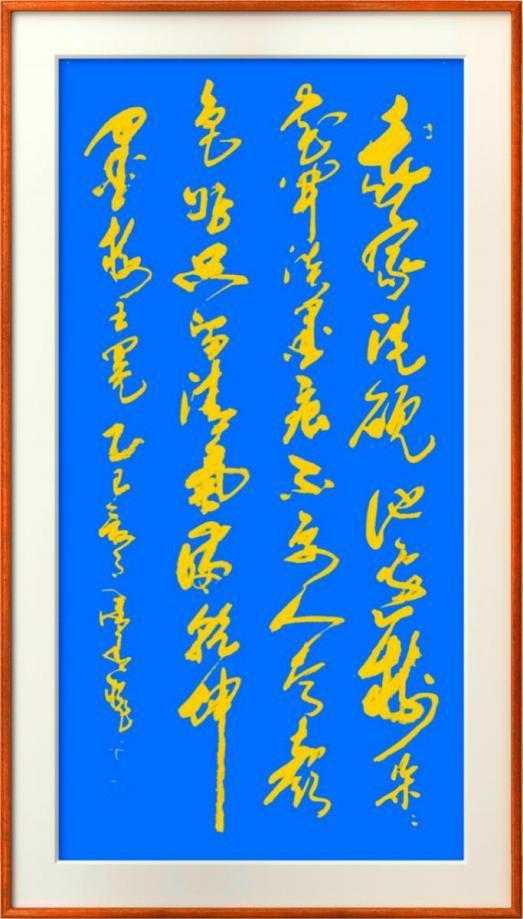 吾家洗砚池头树朵々
花开淡墨痕不要人夸颜
色好只留清气满乾坤
墨梅王冕 乙巳